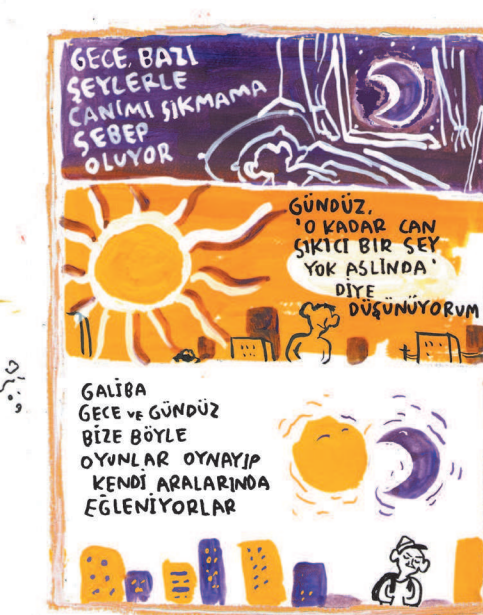 GECE, BAZI
ŞEYLERLE
CANIMI SIKMAMA
SEBEP
OLUYOR
GÜNDÜZ,
'O KADAR CAN
SIKICI BİR ŞEY
YOK ASLINDA'
DİYE
DÜŞÜNÜYORUM
GALİBA
GECE VE GÜNDÜZ
BİZE BÖYLE
OYUNLAR OYNAYIP
KENDİ ARALARINDA
EĞLENİYORLAR